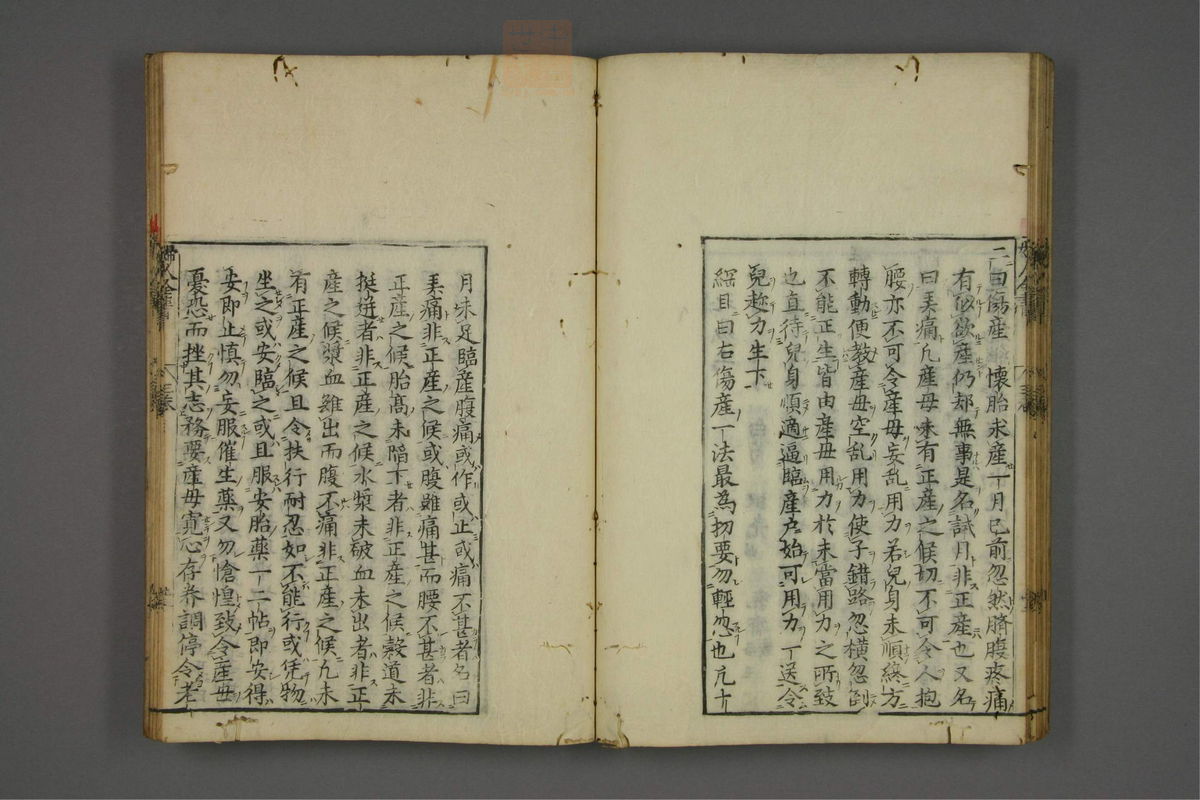 二曰傷産 懷胎求産一月已前忽然臍腹疼痛
有似欲産仍却無事是名試月非正産也又名
曰弄痛凢産母未有正産之候切不可令人抱
腰亦不可令産母妄乱用力若兒身未順緫方
轉動便教産母空乱用力使子錯路忽横忽倒
不能正生皆由産母用力於未當用力之所致
也直待兒身順適逼臨産户始可用力一送令
兒趂力生下
綱目曰右傷産一法最為切要勿輕忽也凢十
月未足臨産腹痛或作或止或痛不甚者名曰
弄痛非正産之候或腹雖痛甚而腰不甚者非
正産之候胎髙未陥下者非正産之候糓道未
挺迸者非正産之候水漿未破血未出者非正
産之候漿血雖出而腹不痛非正産之候凢未
有正産之候且令扶行耐忍如不能行或凭物
坐之或安臨之或且服安胎藥一二帖即安得
安即止慎勿妄服催生藥又勿愴惶致令産母
憂恐而挫其志務要産母寛心存养調停令老
婦人全書